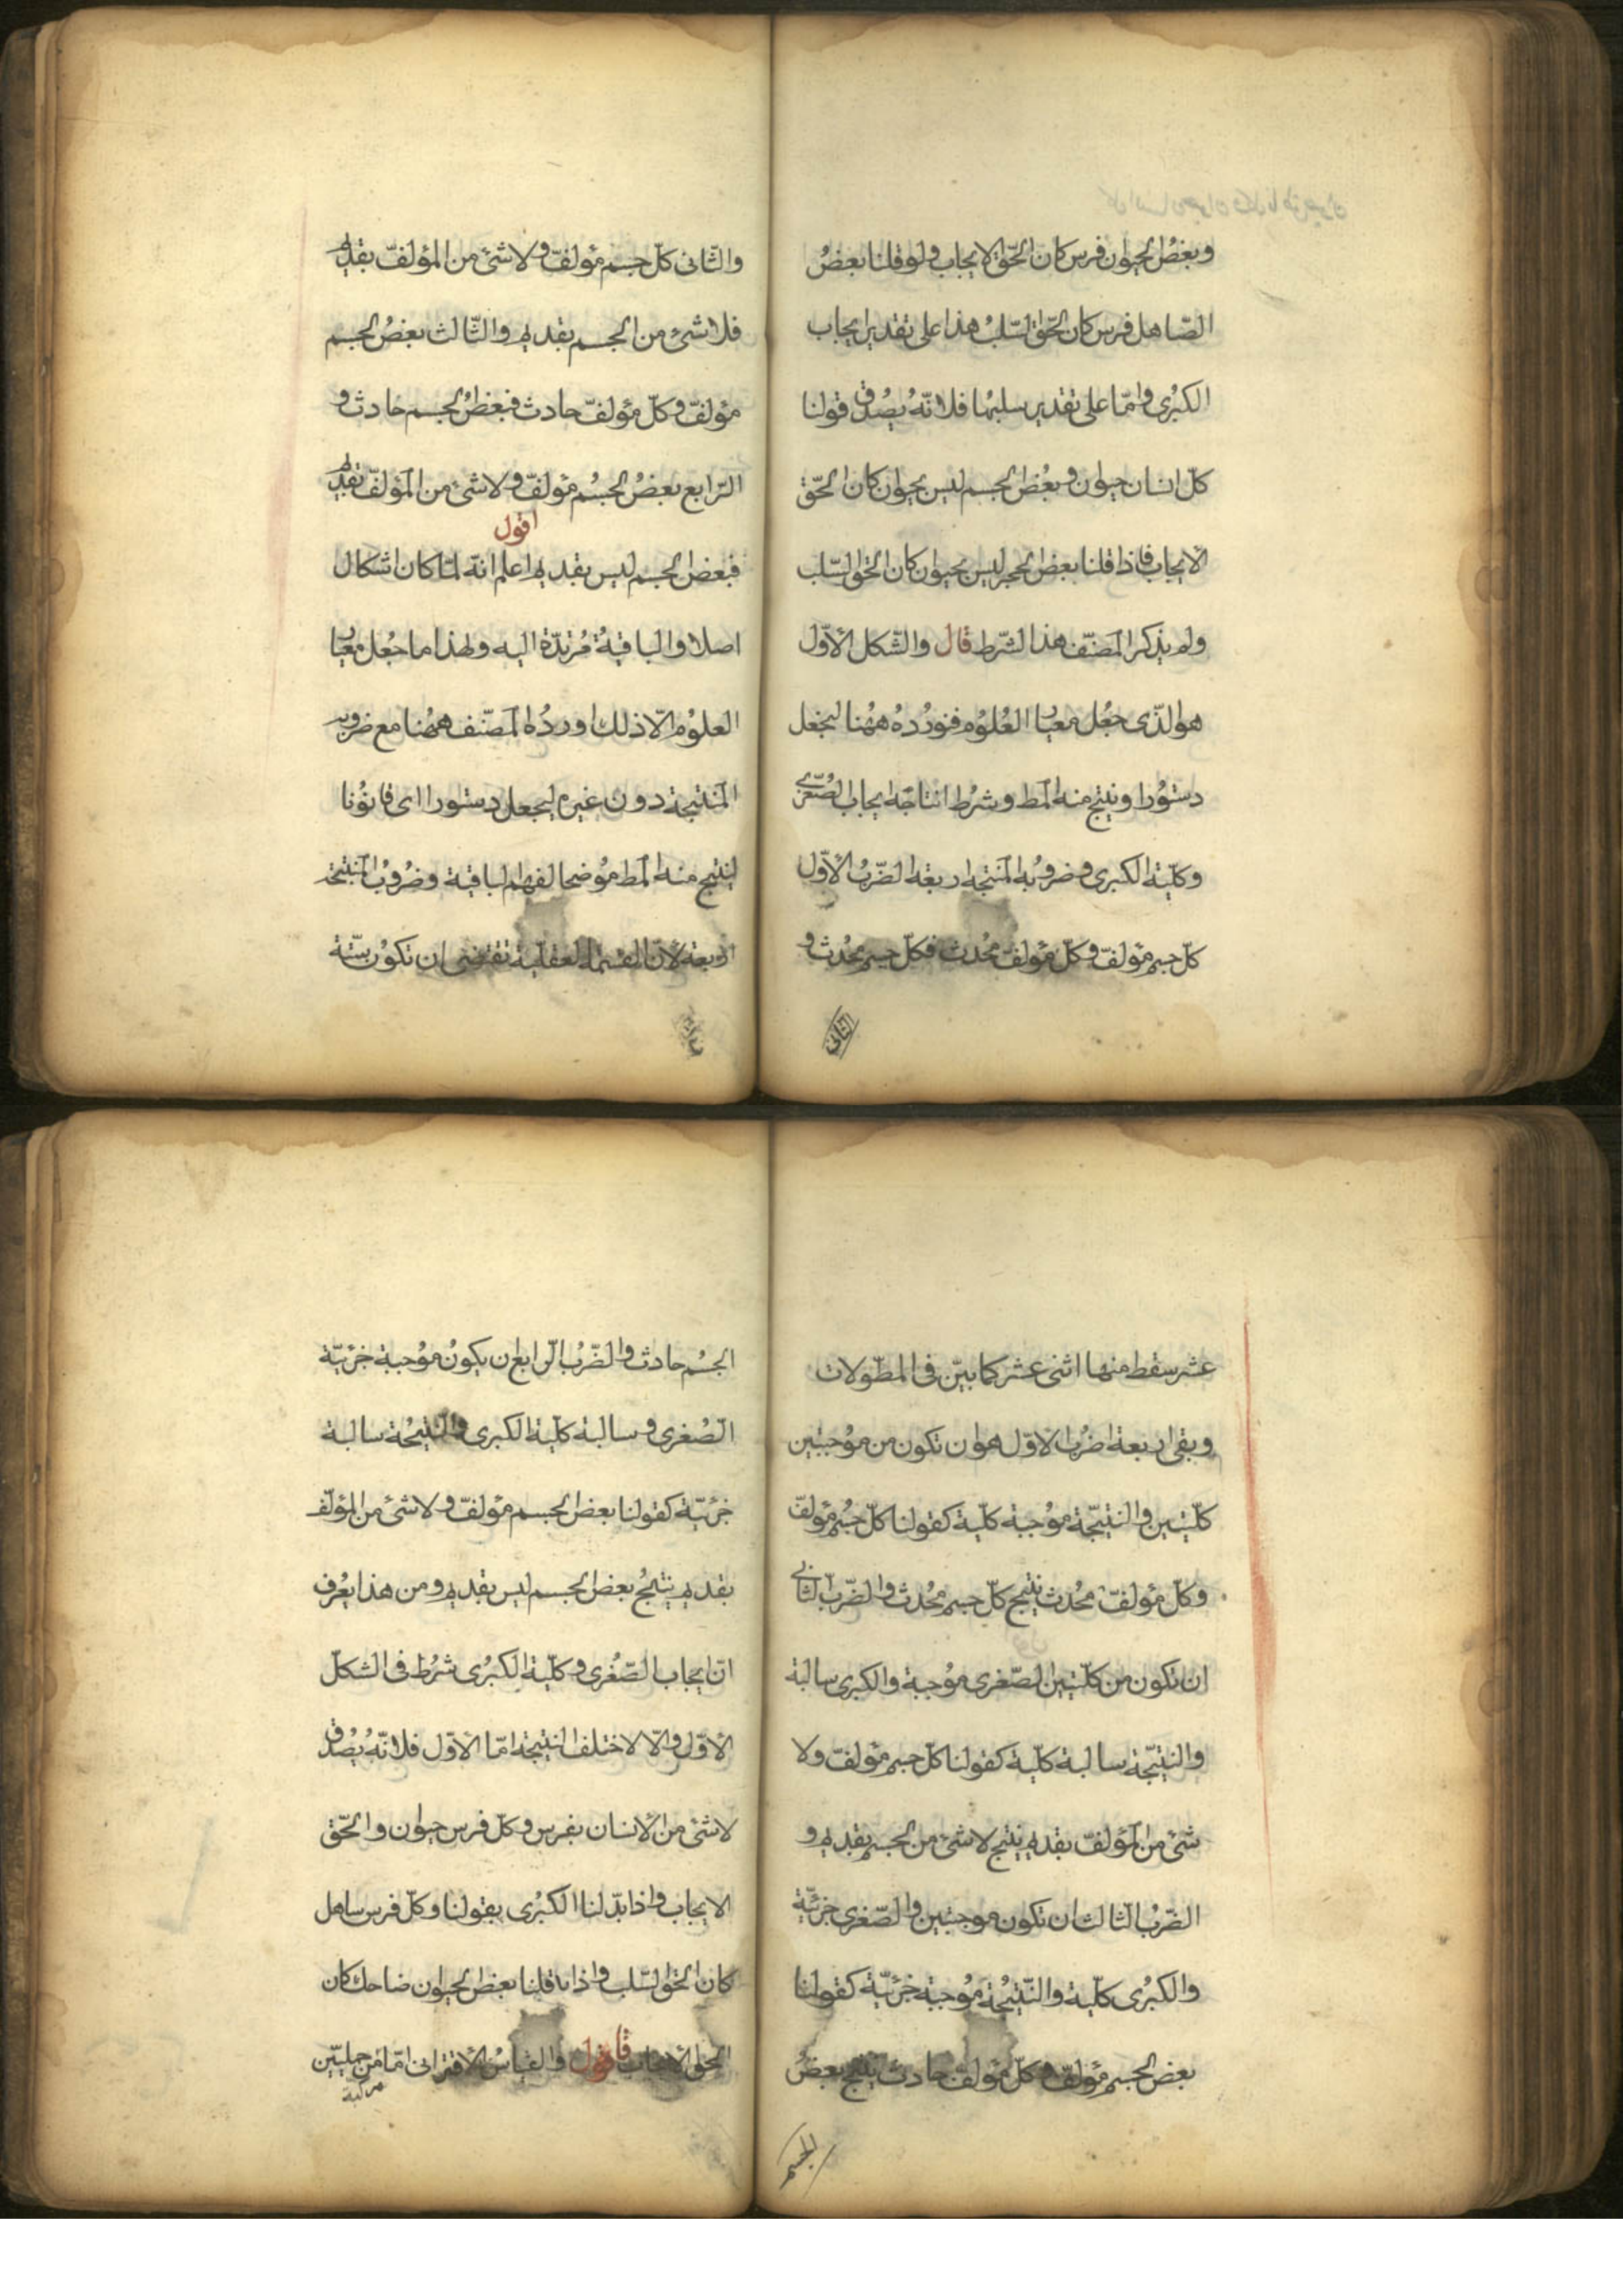 وبعضُ الحيوان فرس كان الحقّ الايجاب ولو قلنا بعضُ
الصّاهل فرس كان الحقّ السّلبُ هذا على تقدير ايجاب
الكبُرى وامّا على تقدير سلبها فلانّهُ يصُدق قولنا
كلّ انسان حيوان وبعُض الجسم ليس بحيوان كان الحّق
الايجاب فاذا قلنا بعض الحجر ليس بحيوان كان الحق السّلب
ولم يذكر المصنّف هذا الشّرط قال والشّكل الأوّل
هو الذّى جعُل معيار العُلوُم فنورُدهُ ههُنا ليجعل
دستوُرا وينتج منه المط وشرُط انتاجه ايجاب الصُغرى
وكليّة الكبرى وضروبُه المنتجه اربعة الضّربُ الأوّل
كلّ جسم مؤلفّ وكلّ مؤلفّ محُدث فكلّ جسم محُدث و
الثانى
والثّانى كلّ جسم مؤلفّ ولا شئ من المؤلفّ بقديم
فلا شئ من الجسم بقديم والثّالث بعضُ الجسم
مؤلفّ وكلّ مؤلفّ حادث فبعضُ الجسم حادث و
الرّابع بعضُ الجسُم مؤلفّ ولا شئ من المؤلفّ بقديم
اقول
فبعض الجسم ليس بقديم اعلم انّه لمّا كان اشكال
اصلا والباقيةُ مُرتدّة اليه ولهذا ما جعُل معيار
العلوُم الّا ذلك اوردُه المصنّف ههُنا مع ضروبه
المنتيجة دون غيره ليجعل دستورا اى قانوُنا
لينتج منه المط موُضحا لفهم الباقية وضرُوبُ المنتيجة
اربعة لأنّ القسمة العقليةّ تقتضى ان تكوُن ستّة
عشر سقط منها اثنى عشر كما بيّن فى المطّولات
وبقى اربعة اضرُب الاوّل هو ان تكون من موُجبتين
كليّتين والنتيجّة موُجبة كليّة كقولنا كلّ جسُم مؤلفّ
وكلّ مؤلفّ محُدث ينتج كلّ جسم محُدث والضّربُ الثانى
ان تكون من كليّتين الصّغرى موُجبة والكبرى سالبة
والنتيجّة سالبة كليّة كقولنا كلّ جسم مؤلفّ ولا
شئ من المؤلفّ بقديم ينتج لا شئ من الجسم بقديم و
الضّربُ الثالث ان تكون موجبتين والصّغرى جزئيّة
والكبرُى كليّة والنّتيجُة موُجبة جزئيّة كقولنا
بعض الجسم مؤلفّ وكلّ مؤلفّ حادث ينتج بعضُ
الجسم
الجسُم حادث والضّربُ الرّابع ان يكونُ موُجبة جزئيّة
الصُغرى وسالبة كليّة الكبرى والنتيجُة سالبة
جزئيّة كقولنا بعض الجسم مؤلفّ ولا شئ من المؤلّف
بقديم ينتجُ بعض الجسم ليس بقديم ومن هذا يعُرف
انّ ايجاب الصّغُرى وكليّة الكبرُى شرُط فى الشكلّ
الأوّل والّا لاختلف النتيجة امّا الأوّل فلانّهُ يصُدق
لا شئ من الأنسان بفرس وكلّ فرس حيوان والحّق
الايجاب واذا بدّلنا الكبرُى بقولنا وكلّ فرس ساهل
كان الحق السّلب واذا قلنا بعض الحيوان ضاحك كان
الحق الايجاب قال اقول والقياسُ الأقترانى امّا من حمليتّين
مركبة